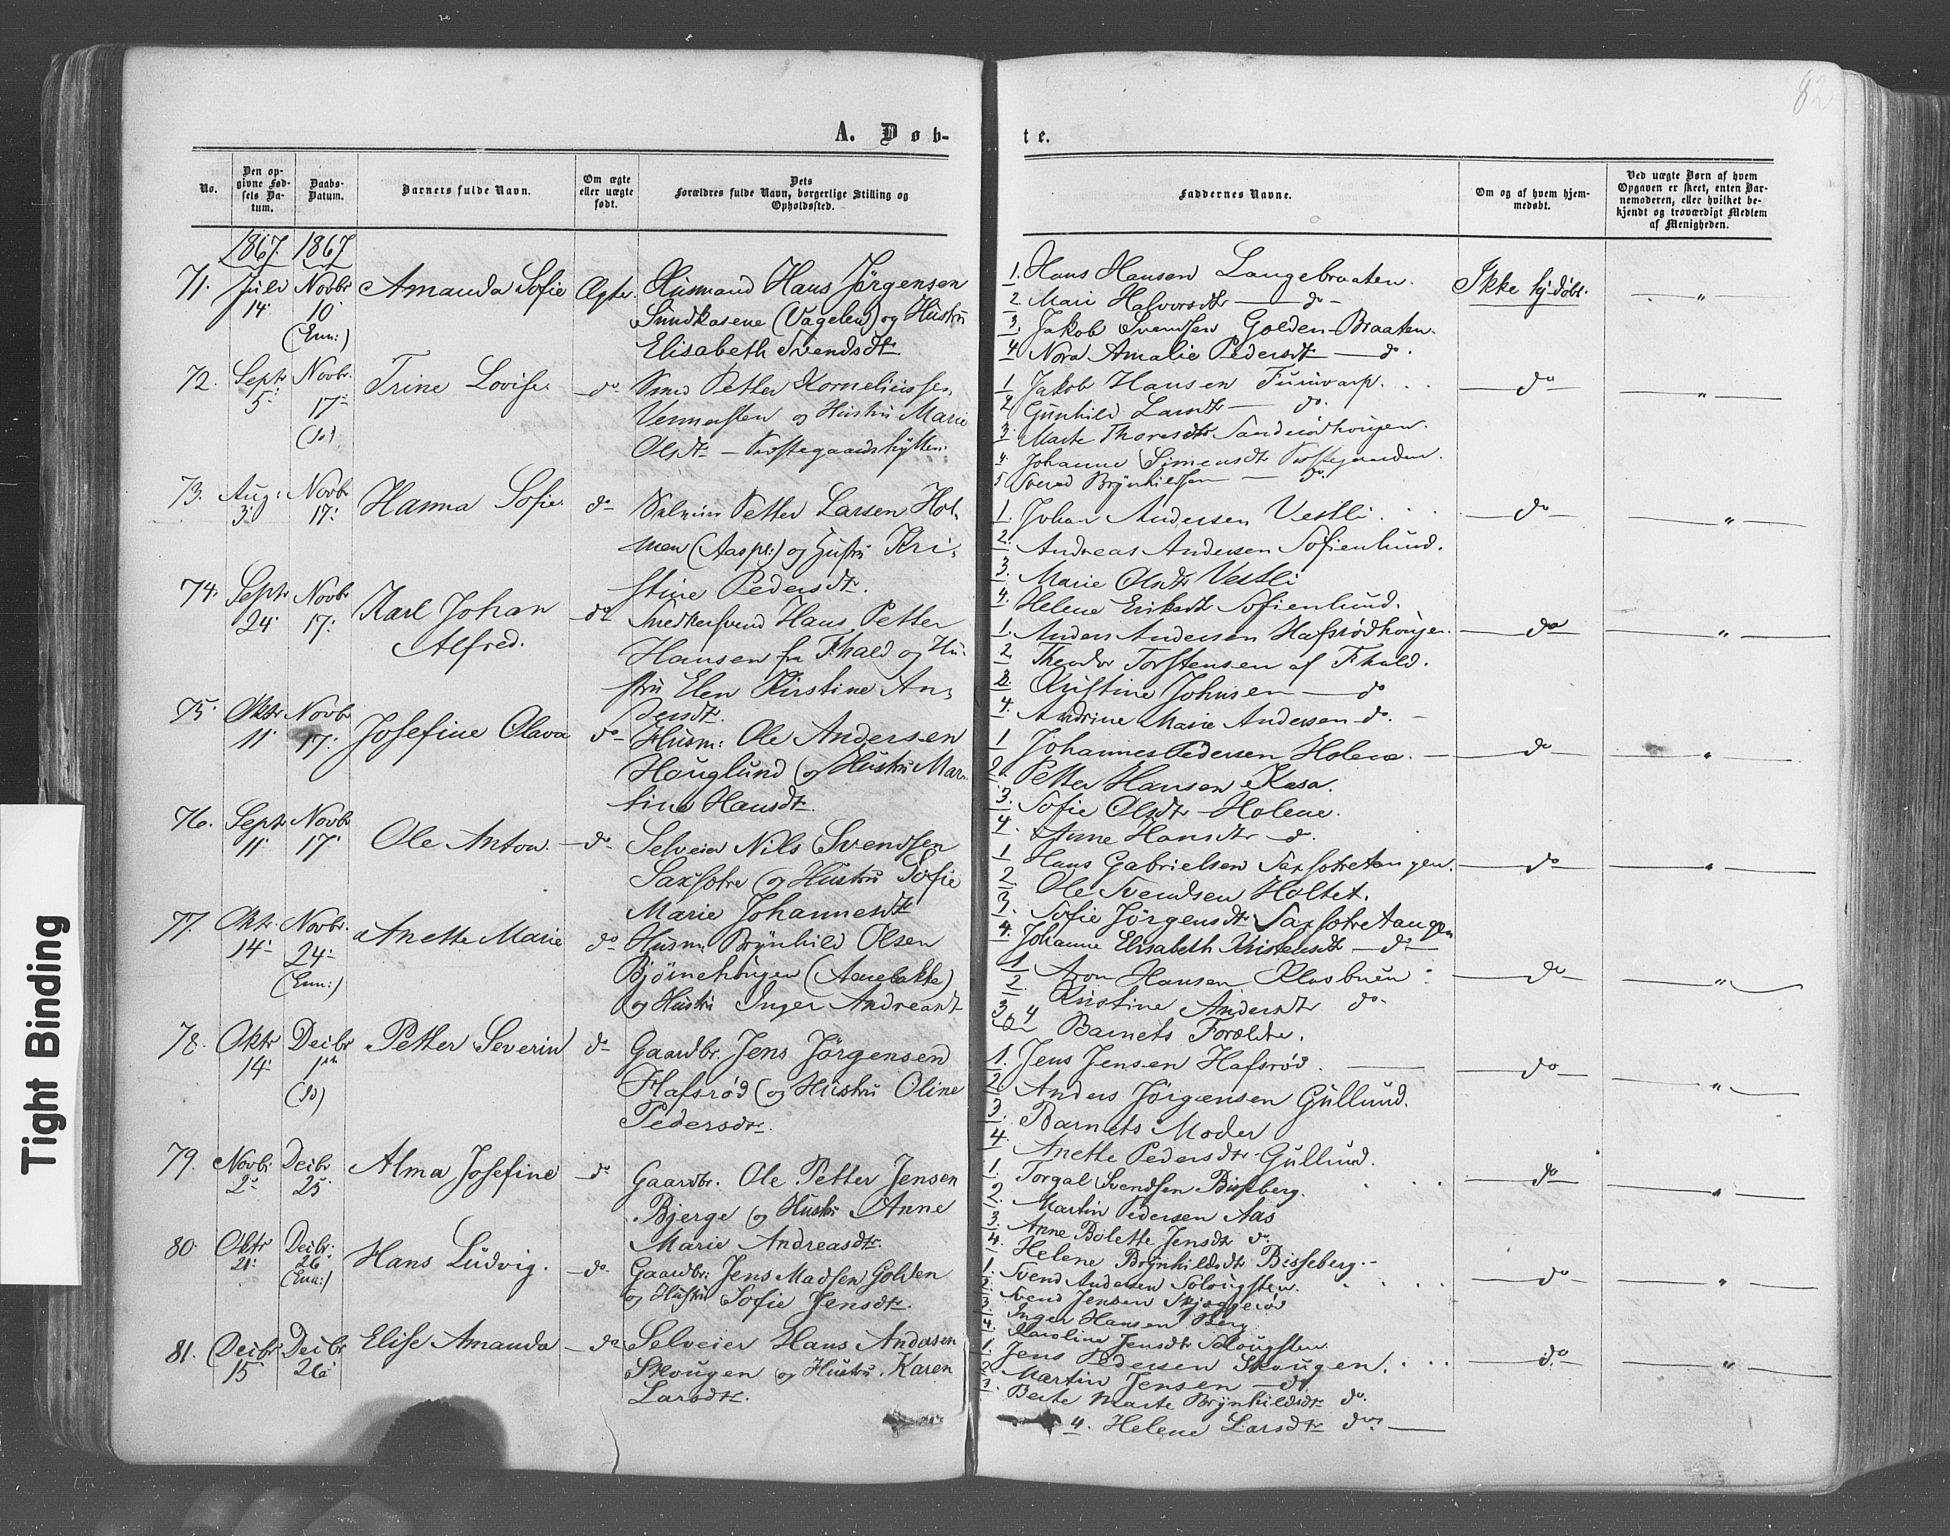 82
A. Døb-
te.
No.
Den opgivne Fødsels Datum.
Daabs-Datum.
Barnets fulde Navn.
Om ægte eller uægte født.
Dets Forældres fulde Navn, borgerlige Stilling og Opholdssted.
Faddernes Navne.
Om og af hvem hjemmedøbt.
Ved uægte Børn af hvem Opgaven er skeet, enten Barnemoderen, eller hvilket bekjendt og troværdigt Medlem af Menigheden.
1867. 1867
71. Juli 14 Novbr 10 (Enn:) Amanda Sofie Ægte.
Husmand Hans Jørgensen
Sundkasene (Vagelen) og Hustru
Elisabeth Svendsdtr.
1. Hans Hansen Langebraaten.
2. Mari Halvorsdtr — do —
3. Jakob Svendsen Golden-Braaten.
4 Nora Amalie Pedersdtr — do.
Ikke hj-døbt. "
72. Septr 5 Novbr. 17 (Id) Trine Lovise. do
Smed Petter Korneliussen
og Hustru Marie
Olsdtr —
1 Jakob Hansen
2 Gunhild Larsdtr — do.
3. Marte Thoresdtr
4. Johanne Simensdtr
5 Svend Brynhildsen — do.
do "
73. Aug: 3 Novbr 17: Hanna Sofie. do
Petter Larsen Hol-
men (Aaspl:) og Hustru Kri-
stine Pedersdtr.
1. Johan Andersen Vestli
2. Andreas Andersen Sofienlund.
3. Marie Olsdtr Vestli
4. Helene Eriksdtr Sofienlund.
do "
74. Septr 24 Novbr 17: Karl Johan
Alfred. do
Snedkersvend Hans Petter
Hansen fra Fhald og Hu-
stru Elen Kirstine An-
dersdtr.
1. Anders Andersen Hafsrødhougen.
2. Theodor Torstensen af Fhald.
3. Kristine Johnsen — do
4. Andrine Marie Andersen do.
do "
75. Oktr 11 Novbr 17: Josefine Olava do
Husm: Ole Andersen
Houglund og Hustru Mar-
tine Hansdtr.
1 Johannes Pedersen Holene.
2. Petter Hansen Kasa.
3. Sofie Olsdtr Holene.
4. Anne Hansdtr do.
do "
76. Septr 11 Novbr 17 Ole Anton. do
Selveier Nils Svendsen
Saxsotre og Hustru Sofie
Marie Johannesdtr
1 Hans Gabrielsen Saxsotretangen.
2 Ole Svendsen Holtet.
3. Sofie Jørgensdtr Saxsotretangen
4. Johanne Elisabeth Kristensdtr — do
do "
77. Oktr. 14 Novbr. 24 (Enn:) Anette Marie do
Husm: Brynhild Olsen
Bjørnehougen (Anebakke)
og Hustru Inger Andreasdt
1 Aron Hansen
2 Kristine Andersdtr do.
3 & 4 Barnets Forældre.
do "
78. Oktr 14 Decbr 1ste (Id) Petter Severin do
Gaardbr. Jens Jørgensen
Hafsrød og Hustru Oline
Pedersdtr.
1. Jens Jensen Hafsrød.
2 Anders Jørgensen Gullund.
3. Barnets Moder
4. Anette Pedersdtr Gullund.
do "
79. Novbr 2 Decbr 25 Alma Josefine do
Gaardbr. Ole Petter Jensen
Bjerge og Hustru Anne
Marie Andreasdtr.
1. Torgal Svendsen Bisseberg.
2. Martin Pedersen Aas
3. Anne Bolette Jensdtr do.
4. Helene Brynhildsdtr Bisseberg.
do "
80. Oktr 21 Decbr: 26 (Enn:) Hans Ludvig. do
Gaardbr: Jens Madsen Golden
og Hustru Sofie Jensdtr.
1. Svend Andersen Solougsten.
2. Svend Jensen
3. Inger Hansen Berg
4. Karoline Jensdtr Solougsten
do "
81. Decbr 15 Decbr 26 Elise Amanda do
Selveier Hans Andersen
Skougen og Hustru Karen
Larsdtr.
1. Jens Pedersen Skougen.
2 Martin Jensen — do.
3. Berte Marte Brynhildsdtr do.
4. Helene Larsdtr do
do "
Tight Binding